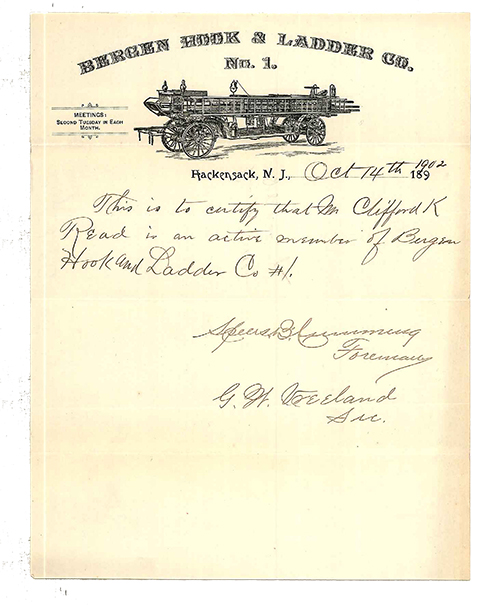 BERGEN HOOK & LADDER CO.
No. 1.
MEETINGS:
SECOND TUESDAY IN EACH
MONTH.
Hackensack, N. J., Oct 14th 1902
189
This is to certify that Mr Clifford K
Read is an active member of Bergen
Hook and Ladder Co #1.
B. Cumming
Foreman
G. W. Vreeland
Sec.